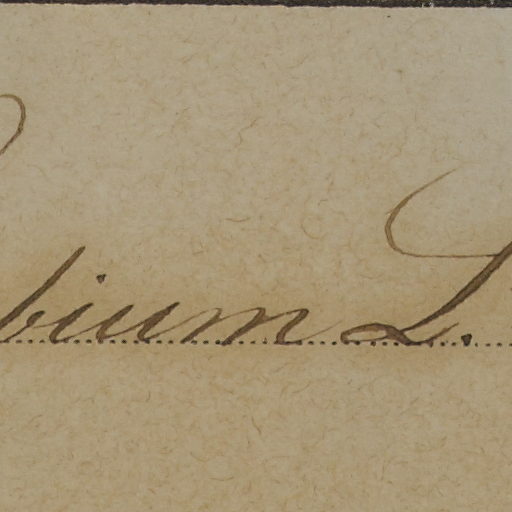 bium L.